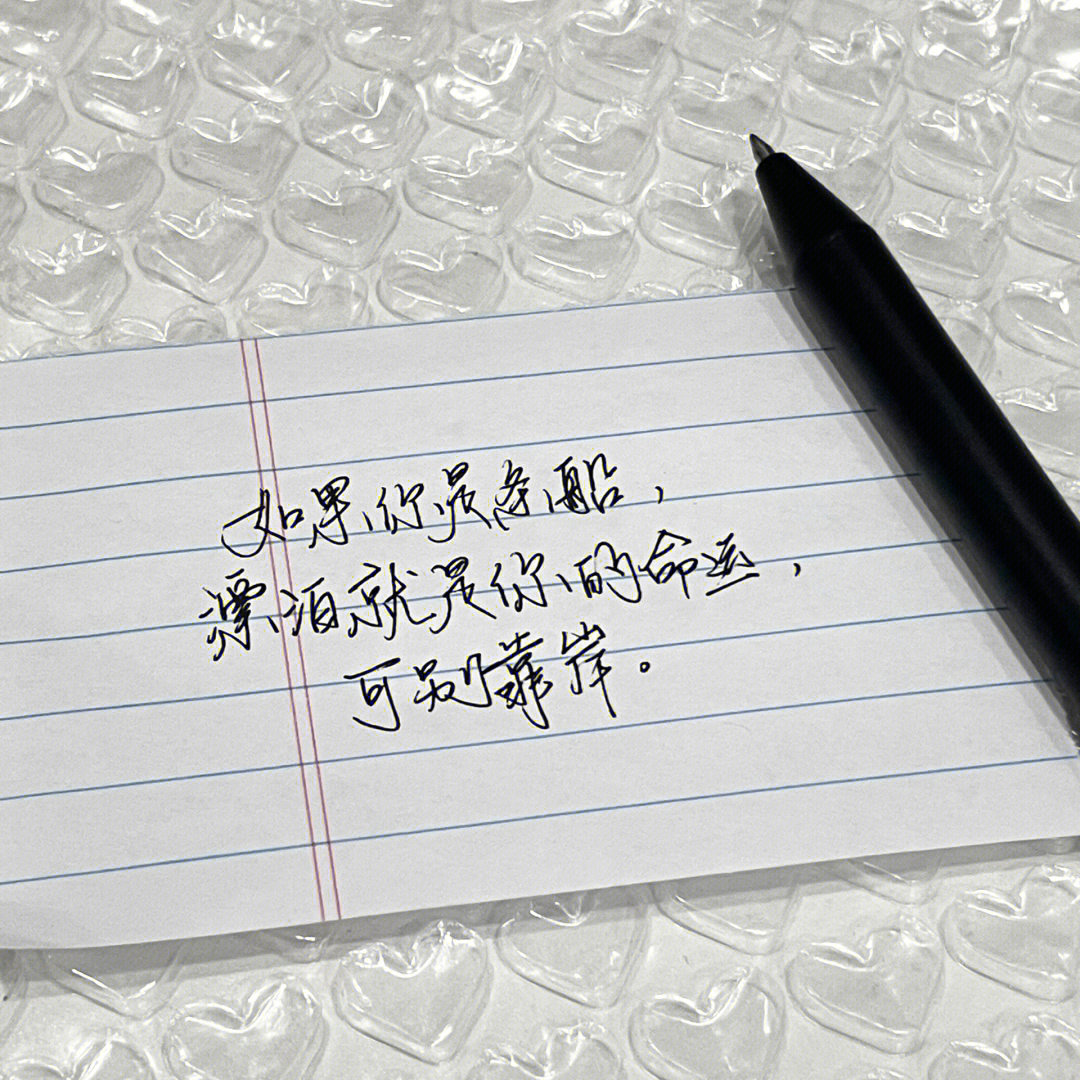 如果你是条船，
漂泊就是你的命运，
可别靠岸。